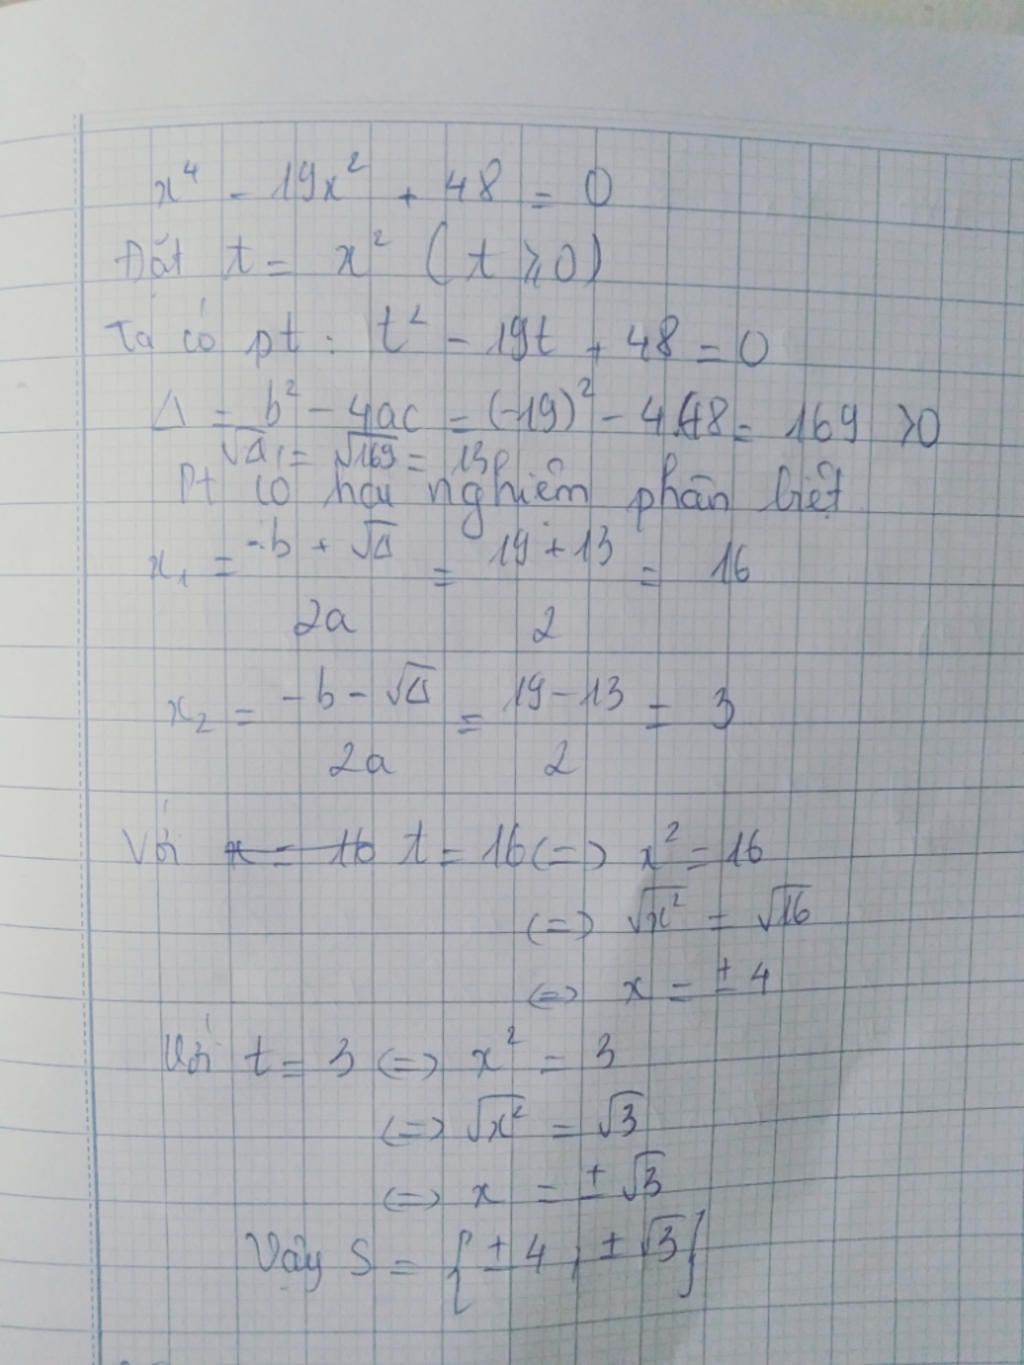 x⁴ - 19x² + 48 = 0
Đặt t = x² (t ≥ 0)
Ta có pt : t² - 19t + 48 = 0
Δ = b² - 4ac = (-19)² - 4.48 = 169 > 0
√Δ = √169 = 13
Pt có hai nghiệm phân biệt
x₁ = (-b + √Δ)/2a = (19 + 13)/2 = 16
x₂ = (-b - √Δ)/2a = (19 - 13)/2 = 3
Với x = 16 t = 16 <=> x² = 16
<=> √x² = √16
<=> x = ± 4
Với t = 3 <=> x² = 3
<=> √x² = √3
<=> x = ± √3
Vậy S = { ± 4 ; ± √3 }